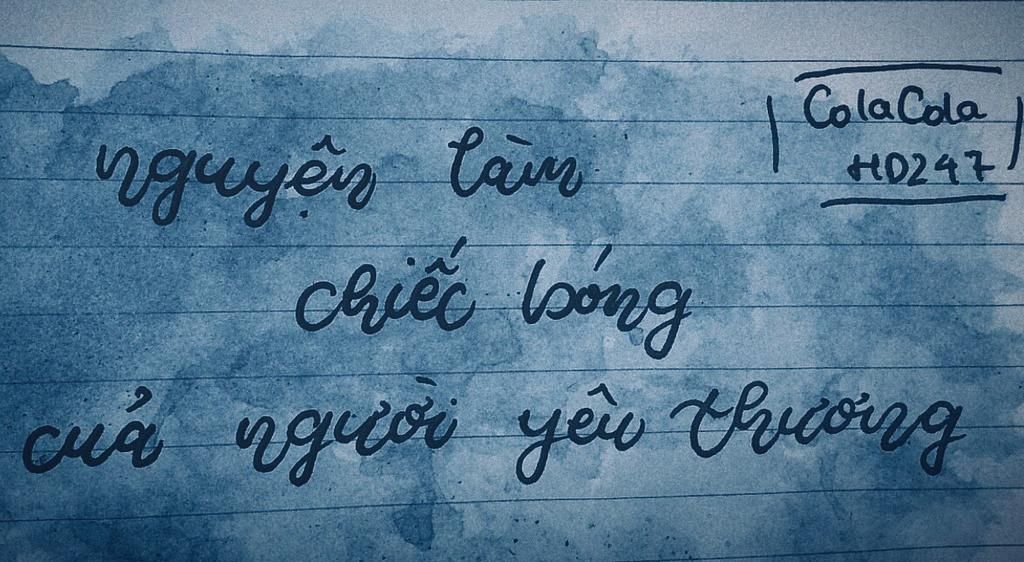 ColaCola
HD247
nguyện làm
chiếc bóng
của người yêu thương